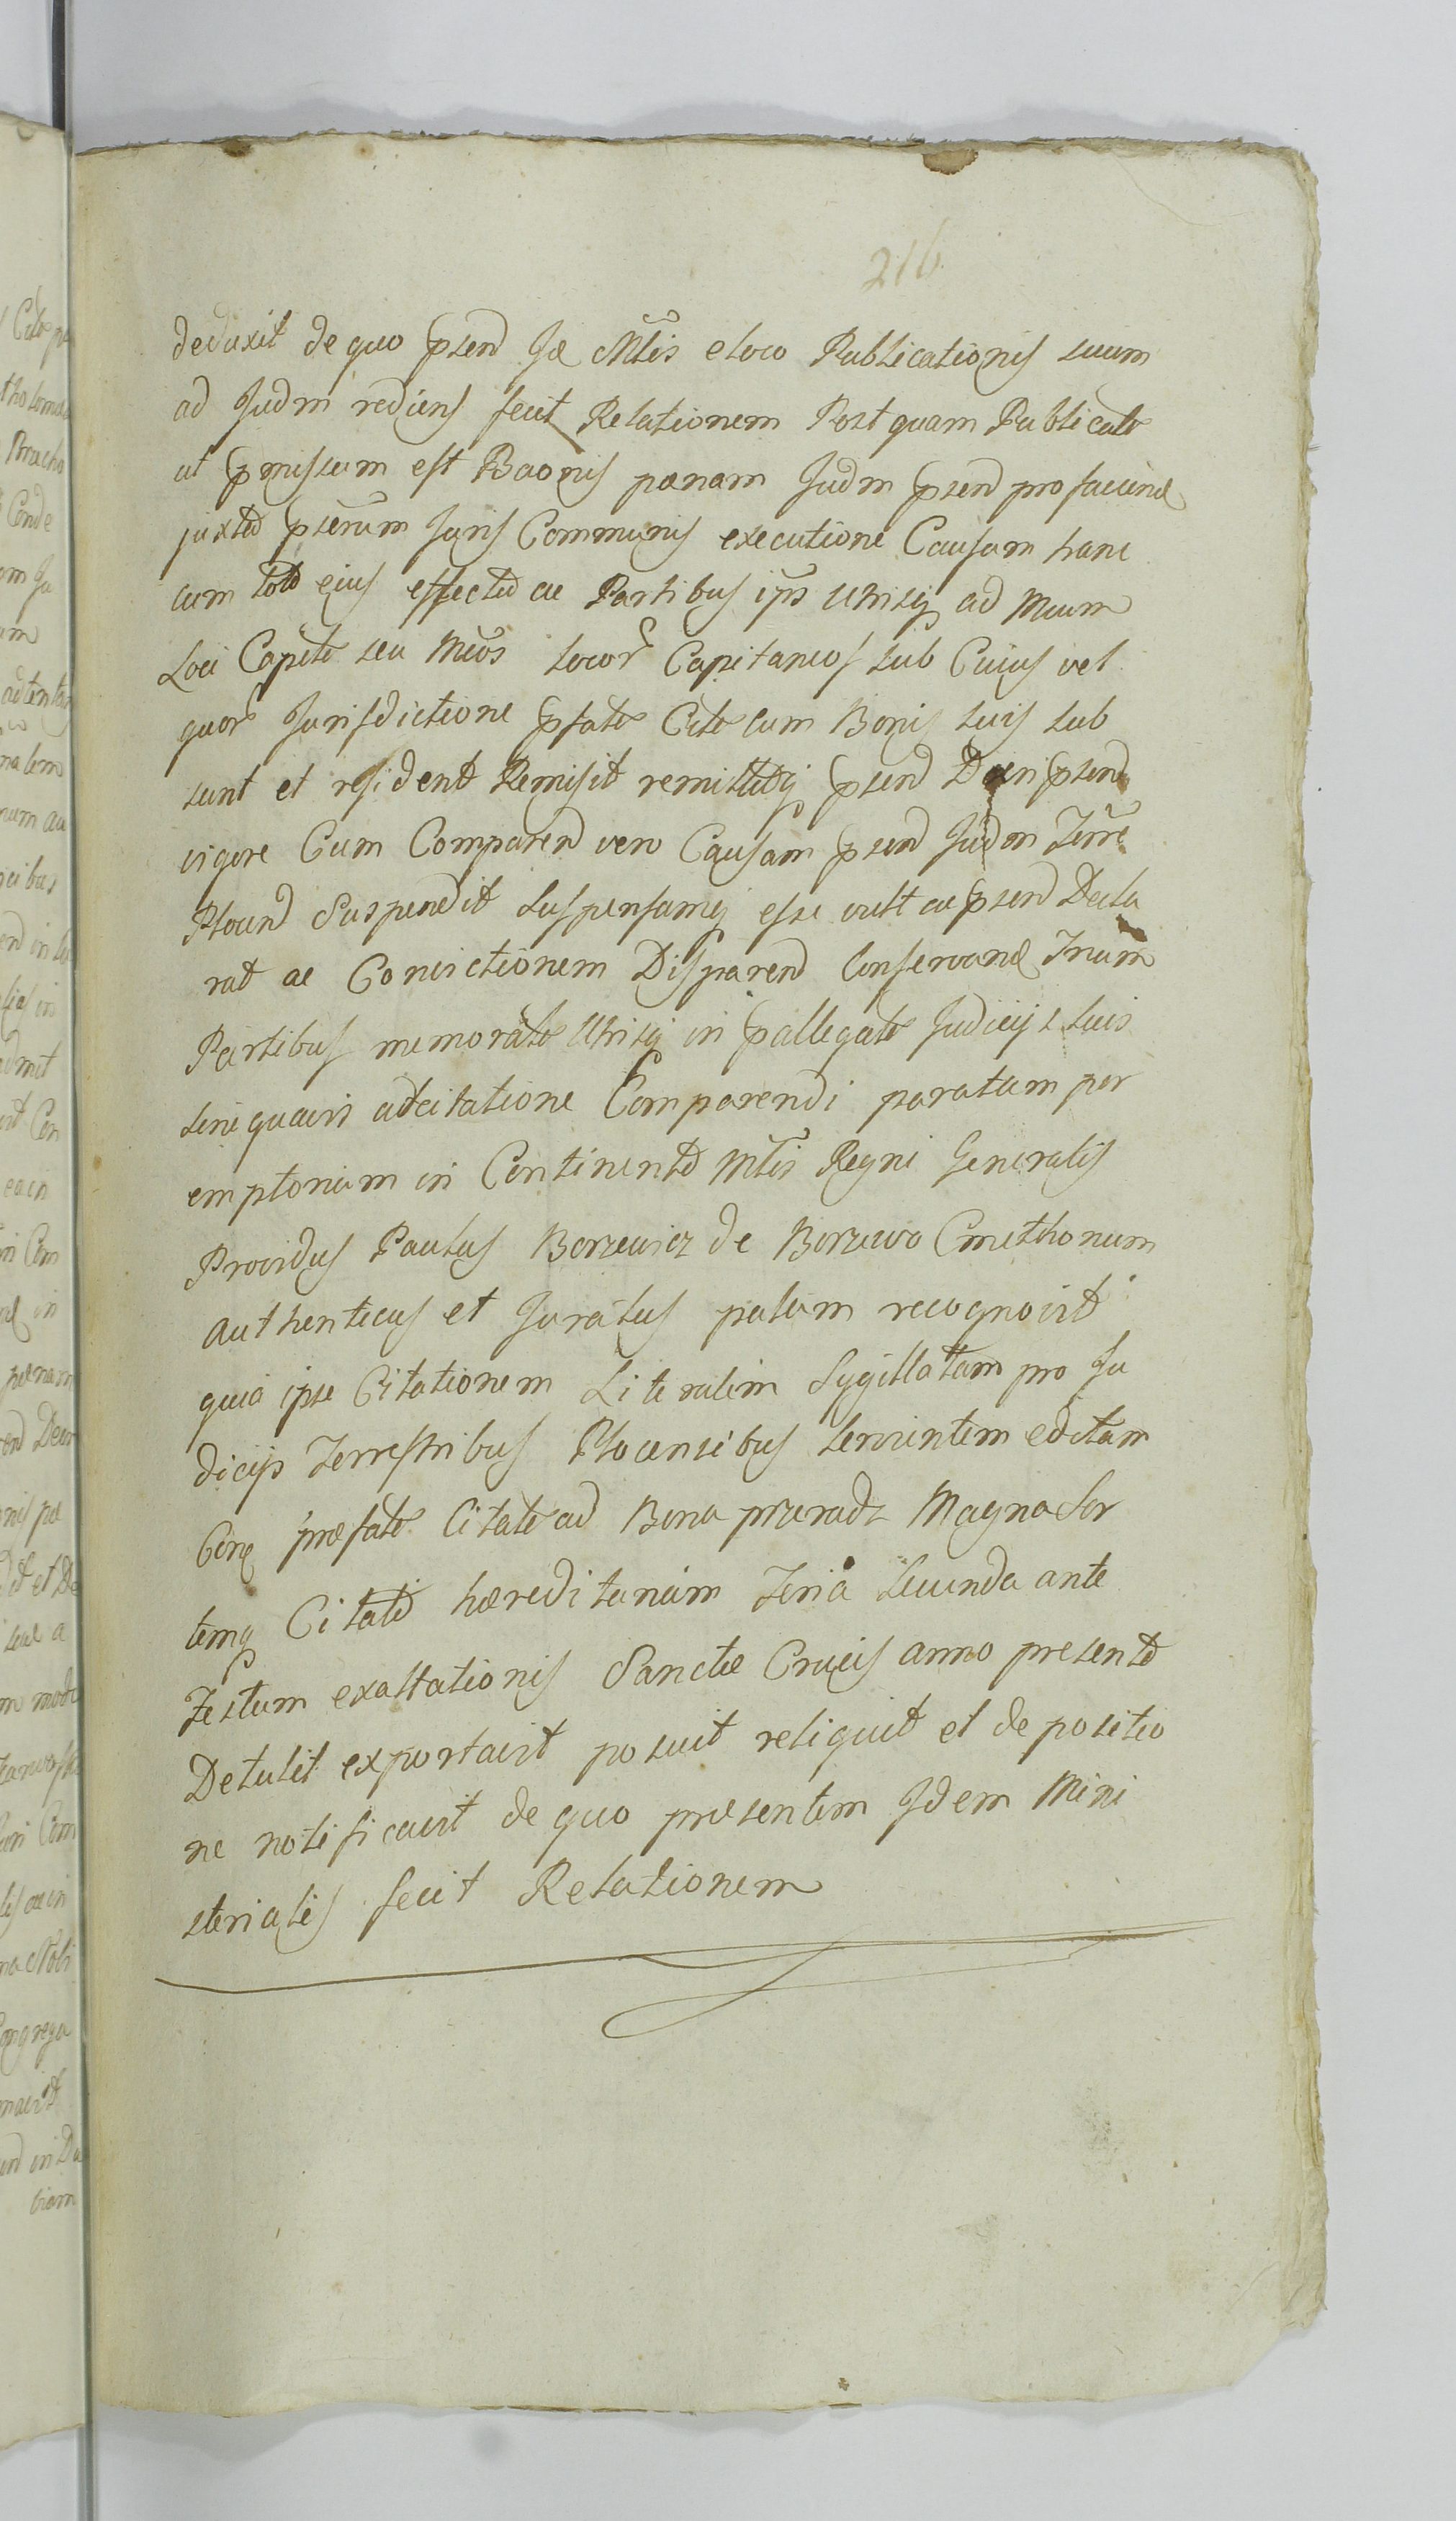 216
deduxit de quo psend Jd Mtis e loco Publicationis suum
ad Judm rediens fecit Relationem Post quam Publicato
ut pmissum est Baonis pænam Judm psend pro faciend
juxta pserum Juris Communis executione Causam hanc
cum toto ejus effectu ac Partibus ips Utrisq ad Mcum
Loci Capite seu Mcos locor Capitaneos sub Cuius vel
quor Jurisdictione pfate Cite cum Bonis suis sub
sunt et resident Remisit remittitq psend psend
vigore Cum Comparend vero Causam psend Judm Terre
Plocend Suspendit suspensamq esse vult ac psend Decla
rat ac Convictionem Disparend Conservand Tnum
Partibus memorate Utrisq in pallegate Judicijs suis
sine quavis adcitatione Comparendi paratum per
emptorium in Continente Mtis Regni Generalis
Providus Paulus Borzewicz de Borzewo Cmethonum
authenticus et Juratus palam recognovit
quia ipse Citationem Literalem Sygillatam pro Ju
dicijs Terrestribus Plocensibus servientem editam
præfate Citate ad Bona przeradz Magna Sor
temq Citate hæreditariam Feria Secunda ante
Festum exaltationis Sanctæ Crucis anno presente
Detulit exportavit posuit reliquit et de positio
ne notificavit de quo præsentem Idem Mini
sterialis fecit Relationem